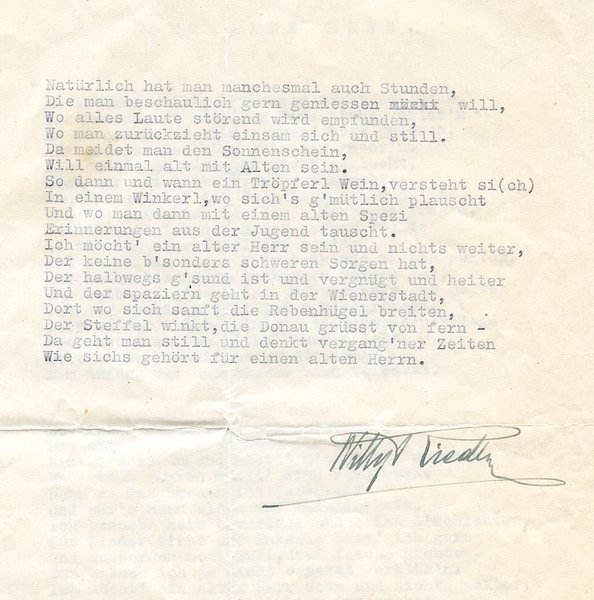 Natürlich hat man manchesmal auch Stunden,
Die man beschaulich gern geniessen will,
Wo alles Laute störend wird empfunden,
Wo man zurückzieht einsam sich und still.
Da meidet man den Sonnenschein,
Will einmal alt mit Alten sein.
So dann und wann ein Tröpferl Wein,versteht si(ch)
In einem Winkerl,wo sich's g'mütlich plauscht
Und wo man dann mit einem alten Spezi
Erinnerungen aus der Jugend tauscht.
Ich möcht' ein alter Herr sein und nichts weiter,
Der keine b'sonders schweren Sorgen hat,
Der halbwegs g'sund ist und vergnügt und heiter
Und der spaziern geht in der Wienerstadt,
Dort wo sich sanft die Rebenhügel breiten,
Der Steffel winkt,die Donau grüsst von fern -
Da geht man still und denkt vergang'ner Zeiten
Wie sichs gehört für einen alten Herrn.
Willy